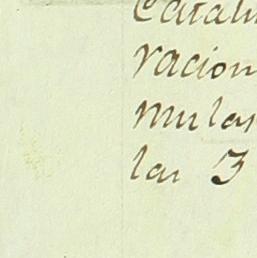 Catali
racion
mulas
las 3